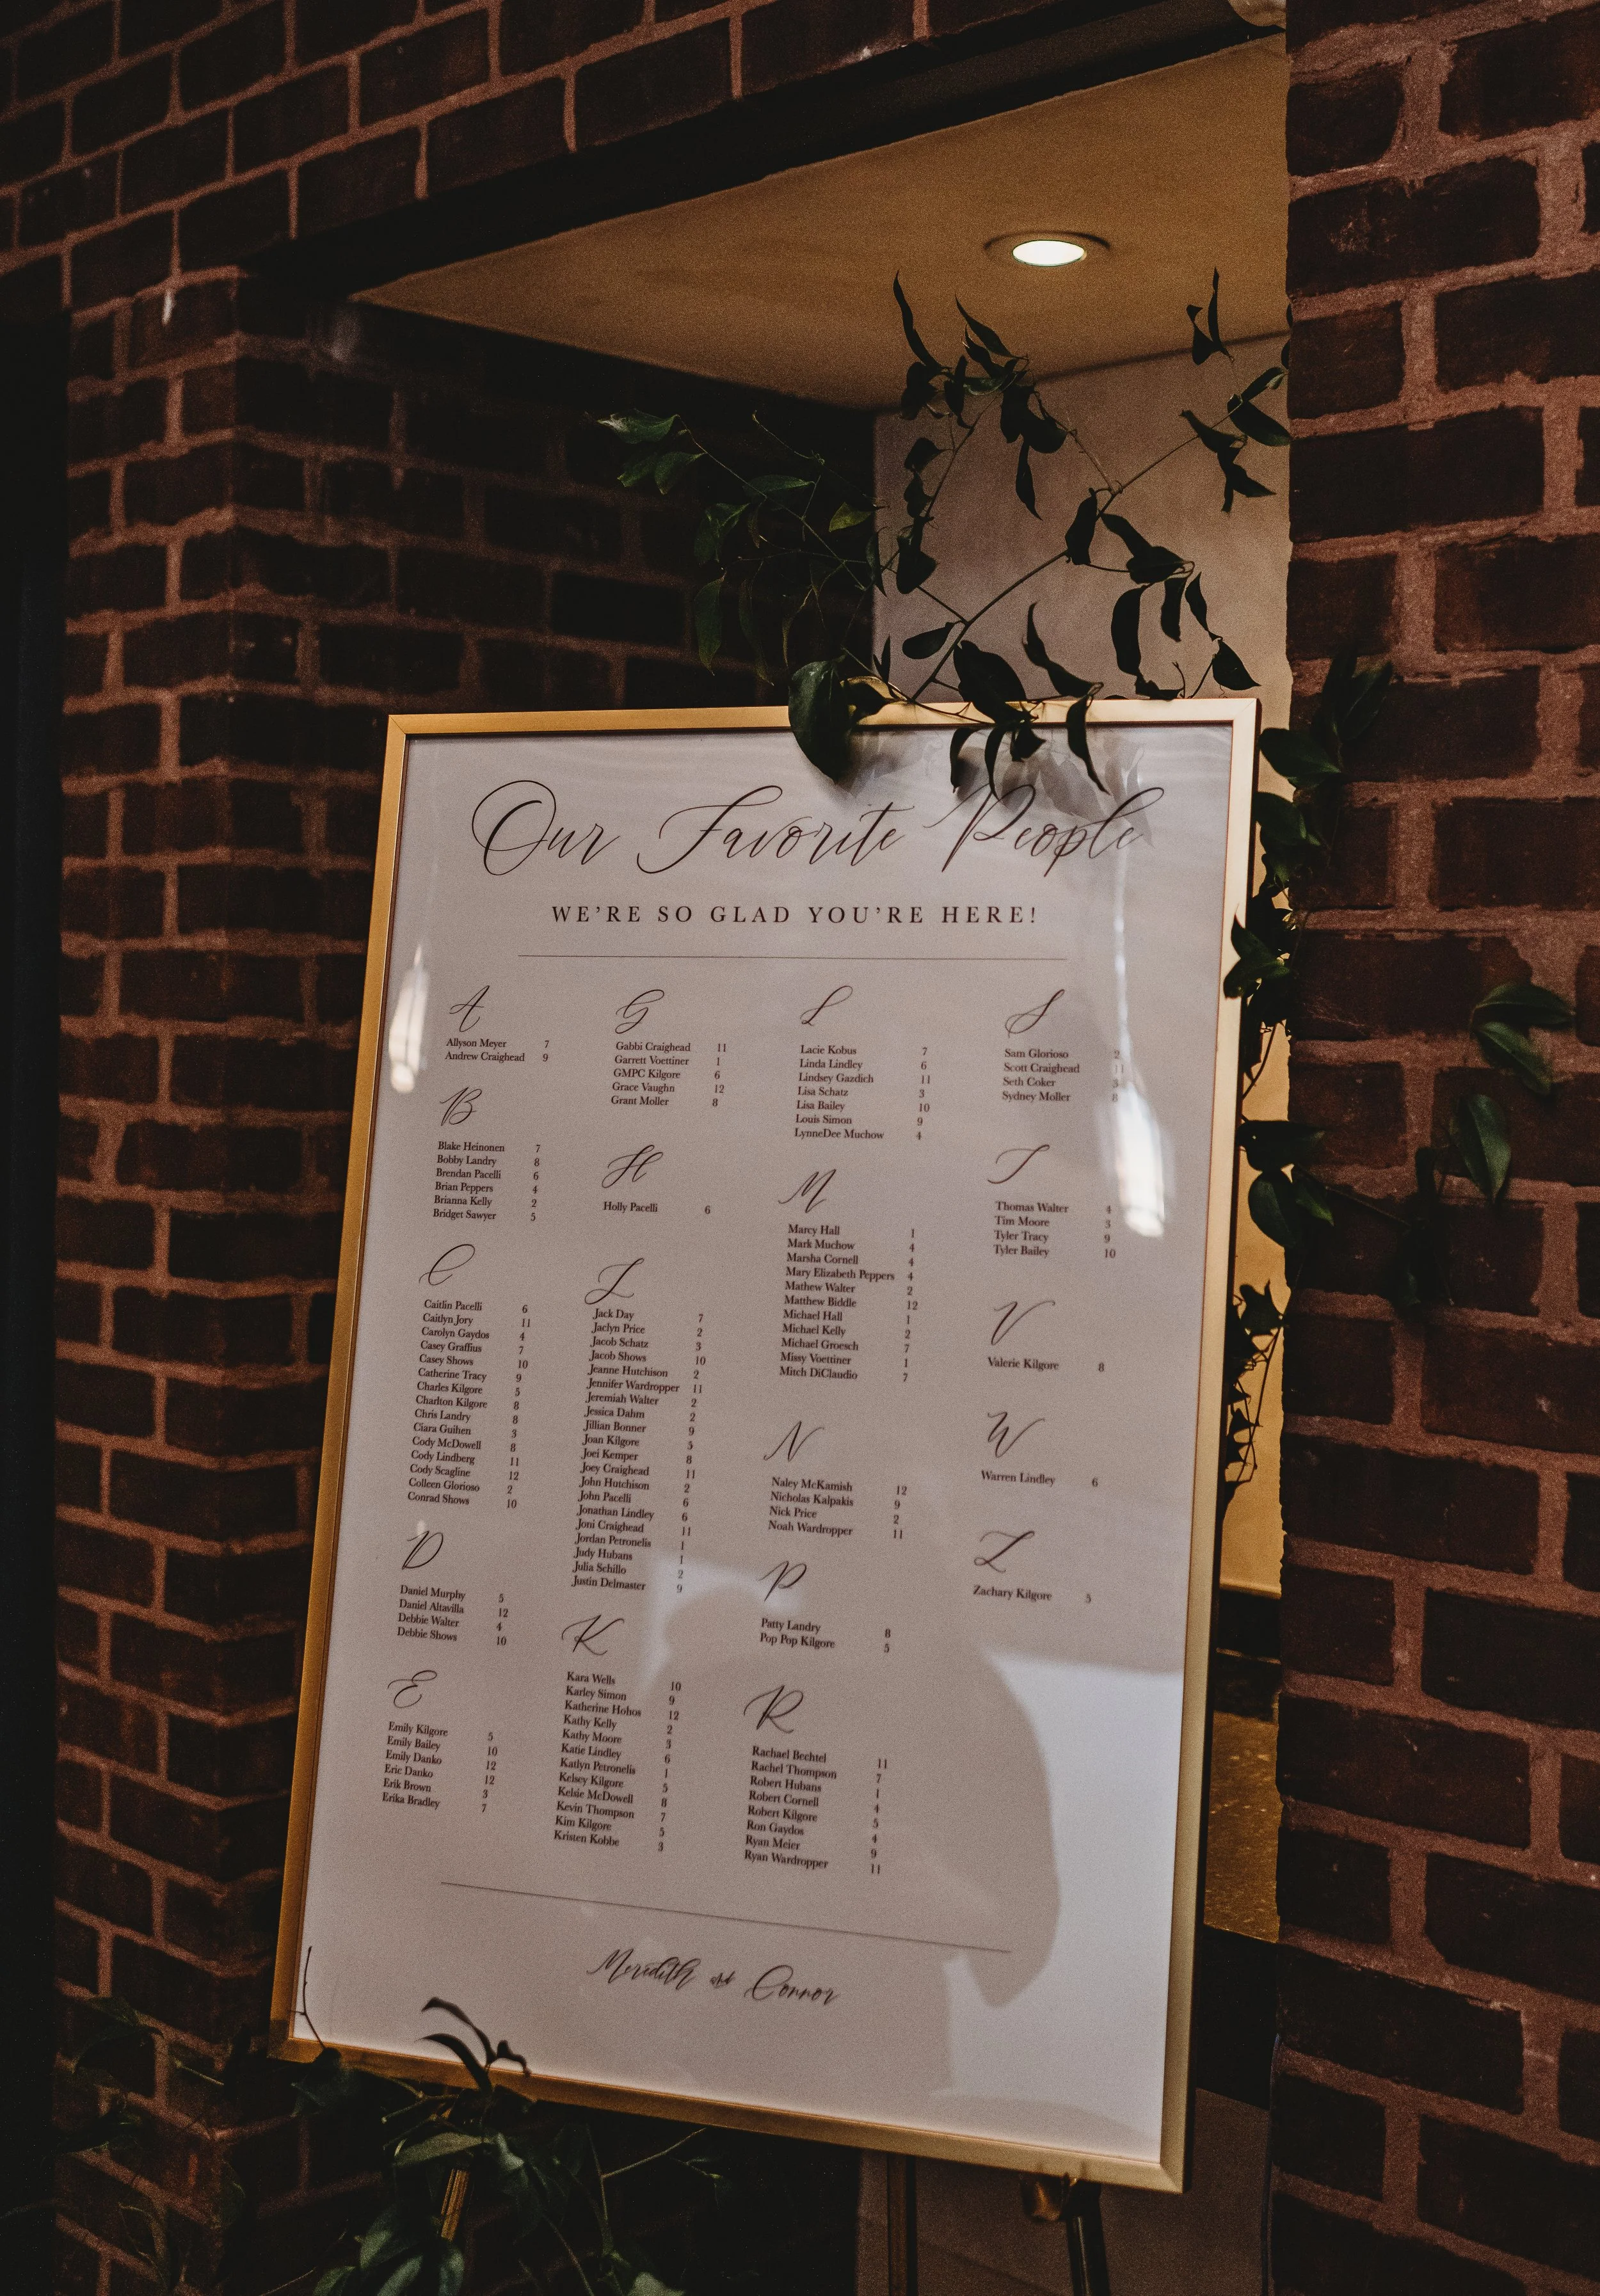 Our Favorite People
WE'RE SO GLAD YOU'RE HERE!
A
Allyson Meyer 7
Andrew Craighead 9
B
Blake Heinonen 7
Bobby Landry 8
Brendan Pacelli 6
Brian Peppers 4
Brianna Kelly 2
Bridget Sawyer 5
C
Caitlin Pacelli 6
Caitlyn Jory 11
Carolyn Gaydos 4
Casey Graffius 7
Casey Shows 10
Catherine Tracy 9
Charles Kilgore 5
Charlton Kilgore 8
Chris Landry 8
Ciara Guihen 3
Cody McDowell 8
Cody Lindberg 11
Cody Scagline 12
Colleen Glorioso 2
Conrad Shows 10
D
Daniel Murphy 5
Daniel Altavilla 12
Debbie Walter 4
Debbie Shows 10
E
Emily Kilgore 5
Emily Bailey 10
Emily Danko 12
Eric Danko 12
Erik Brown 3
Erika Bradley 7
G
Gabbi Craighead 11
Garrett Voettiner 1
GMPC Kilgore 6
Grace Vaughn 12
Grant Moller 8
H
Holly Pacelli 6
J
Jack Day 7
Jaclyn Price 2
Jacob Schatz 3
Jacob Shows 10
Jeanne Hutchison 2
Jennifer Wardropper 11
Jeremiah Walter 2
Jessica Dahm 2
Jillian Bonner 9
Joan Kilgore 5
Joei Kemper 8
Joey Craighead 11
John Hutchison 2
John Pacelli 6
Jonathan Lindley 6
Joni Craighead 11
Jordan Petronelis 1
Judy Hubans 1
Julia Schillo 2
Justin Delmaster 9
K
Kara Wells 10
Karley Simon 9
Katherine Hohos 12
Kathy Kelly 2
Kathy Moore 3
Katie Lindley 6
Katlyn Petronelis 1
Kelsey Kilgore 5
Kelsie McDowell 8
Kevin Thompson 7
Kim Kilgore 5
Kristen Kobbe 3
L
Lacie Kobus 7
Linda Lindley 6
Lindsey Gazdich 11
Lisa Schatz 3
Lisa Bailey 10
Louis Simon 9
LynneDee Muchow 4
M
Marcy Hall 1
Mark Muchow 4
Marsha Cornell 4
Mary Elizabeth Peppers 4
Mathew Walter 2
Matthew Biddle 12
Michael Hall 1
Michael Kelly 2
Michael Groesch 7
Missy Voettiner 1
Mitch DiClaudio 7
N
Naley McKamish 12
Nicholas Kalpakis 9
Nick Price 2
Noah Wardropper 11
P
Patty Landry 8
Pop Pop Kilgore 5
R
Rachael Bechtel 11
Rachel Thompson 7
Robert Hubans 1
Robert Cornell 4
Robert Kilgore 5
Ron Gaydos 4
Ryan Meier 9
Ryan Wardropper 11
S
Sam Glorioso 2
Scott Craighead 11
Seth Coker 3
Sydney Moller 8
T
Thomas Walter 4
Tim Moore 3
Tyler Tracy 9
Tyler Bailey 10
V
Valerie Kilgore 8
W
Warren Lindley 6
Z
Zachary Kilgore 5
Meredith and Connor